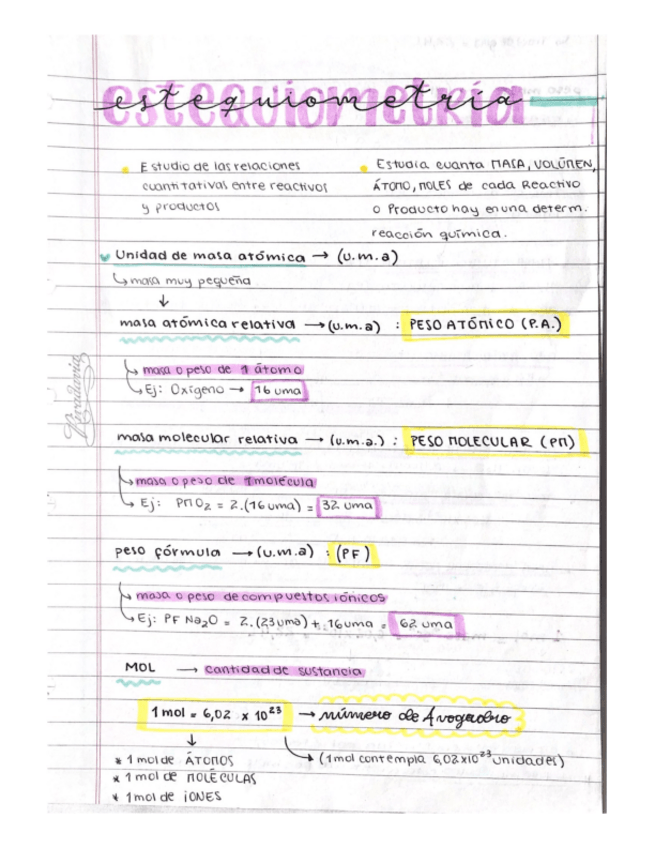 estequiometría
Estudio de las relaciones
cuantitativas entre reactivos
y productos
Estudia cuanta MASA, VOLÚMEN,
ÁTOMO, MOLES de cada Reactivo
o Producto hay en una determ.
reacción química.
Unidad de masa atómica → (u.m.a)
↳ masa muy pequeña
↓
masa atómica relativa → (u.m.a) : PESO ATÓMICO (P.A.)
↳ masa o peso de 1 átomo
↳ Ej: Oxígeno → 16 uma
Rivadavia
masa molecular relativa → (u.m.a.) : PESO MOLECULAR (PM)
↳ masa o peso de 1 molécula
↳ Ej: PM O₂ = 2.(16 uma) = 32 uma
peso fórmula → (u.m.a) : (PF)
↳ masa o peso de compuestos iónicos
↳ Ej: PF Na₂O = 2.(23 uma) + 16 uma = 62 uma
MOL → cantidad de sustancia
1 mol = 6,02 x 10²³ → número de Avogadro
↓
↳ (1 mol contempla 6,02x10²³ unidades)
* 1 mol de ÁTOMOS
* 1 mol de MOLÉCULAS
* 1 mol de iONES